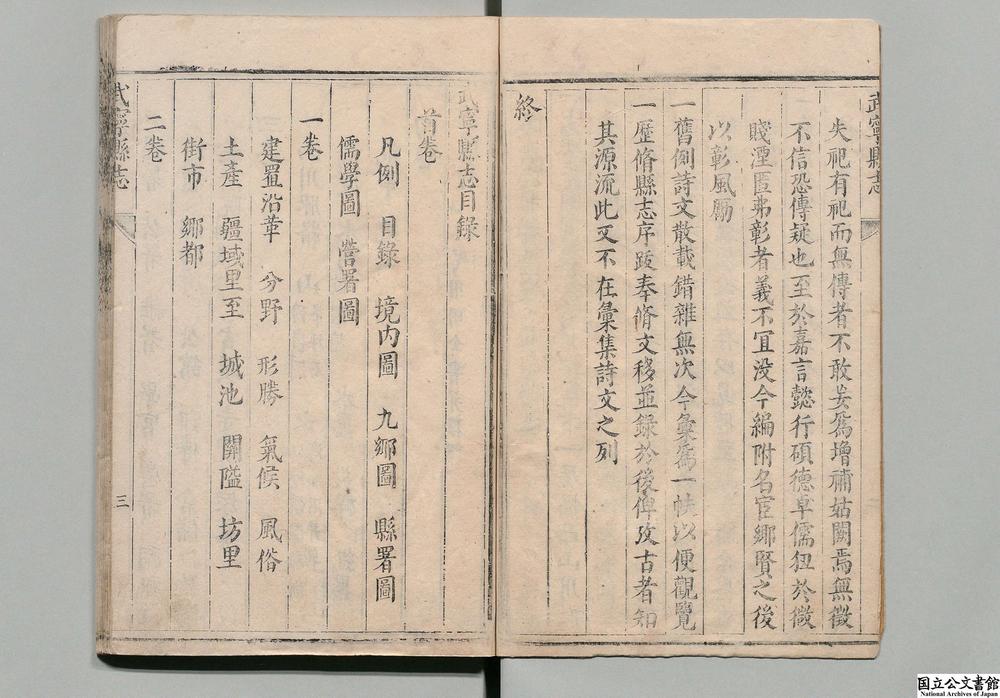 武寧縣志
失祀有祀而無傳者不敢妄爲增補姑闕焉無徵
不信恐傳疑也至於嘉言懿行碩德卓儒狃於微
賤湮匿弗彰者義不冝没今編附名宦鄉賢之後
以彰風厲
一舊例詩文散載錯雜無次今彙爲一帙以便觀覽
一歷脩縣志序跋奉脩文移並録於後俾攷古者知
其源流此又不在彙集詩文之列
終
武寧縣志目錄
首卷
凡例 目錄 境内圖 九鄉圖 縣署圖
儒學圖 營署圖
一卷
建置沿革 分野 形勝 氣候 風俗
土產 疆域里至 城池 關隘 坊里
街市 鄉都
二卷
武寧縣志
三
国立公文書館
National Archives of Japan